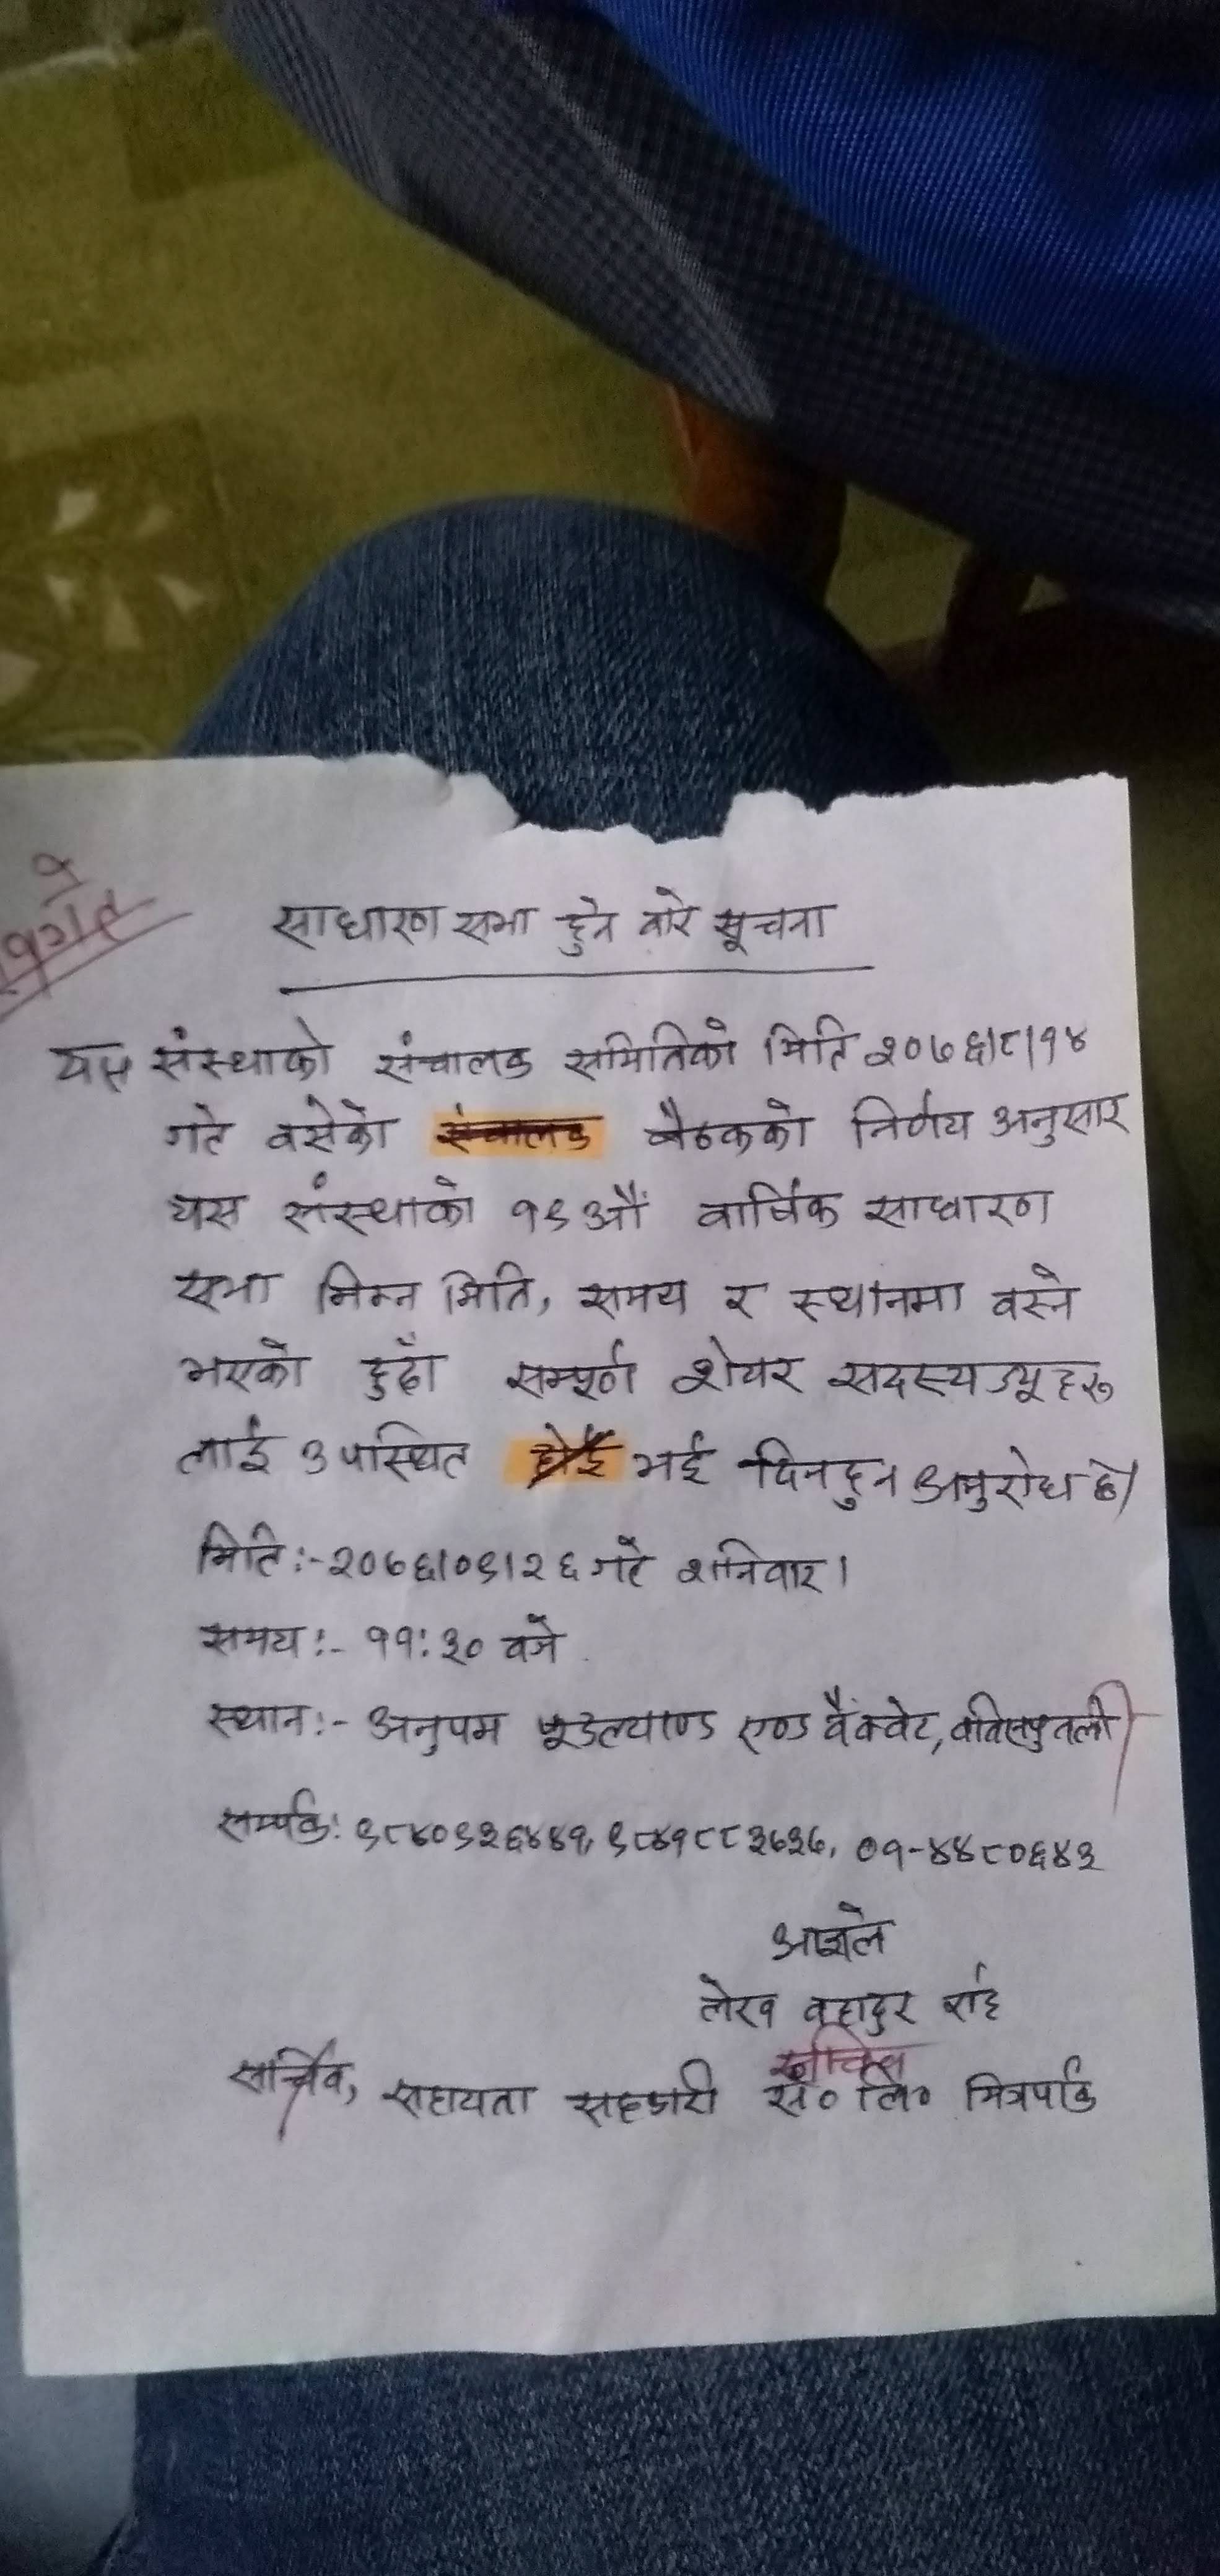 साधारण सभा हुने बारे सूचना
यस संस्थाको संचालक समितिको मिति २०७६।८।१४
गते वसेको संचालक बैठकको निर्णय अनुसार
यस संस्थाको १९औं वार्षिक साधारण
सभा निम्न मिति, समय र स्थानमा वस्ने
भएको हुदाँ सम्पूर्ण शेयर सदस्यज्यूहरु
लाई उपस्थित होई भई दिनहुन अनुरोध छ।
मिति :- २०७६।०९।२६ गते शनिवार।
समय :- ११:३० वजे
स्थान :- अनुपम फूडल्याण्ड एण्ड वैंक्वेट, वत्तिसपुतली
सम्पर्क: ९८४०९३६४४१, ९८४१८८३७३७, ०१-४४८०६४३
आज्ञाले
लेख वहादुर शाह
सचिव
सचिव, सहायता सहकारी सं० लि० मित्रपार्क